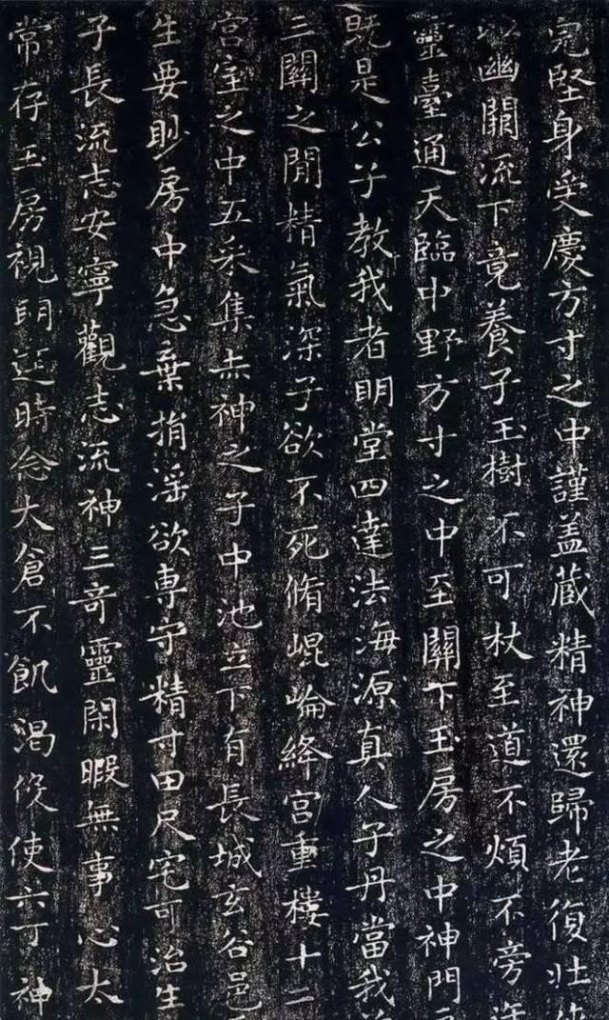 完堅身受慶方寸之中謹盖藏精神還歸老復壯
以幽關流下竟養子玉樹不可杖至道不煩不旁
靈臺通天臨中野方寸之中至關下玉房之中神門
既是公子教我者明堂四達法海源真人子丹當我
三關之間精氣深子欲不死脩崐崘絳宮重樓十二
宮室之中五采集赤神之子中池立下有長城玄谷邑
生要眇房中急棄捐淫欲專守精寸田尺宅可治生
子長流志安寧觀志流神三奇靈閑暇無事心太
常存玉房視明達時念大倉不飢渴役使六丁神